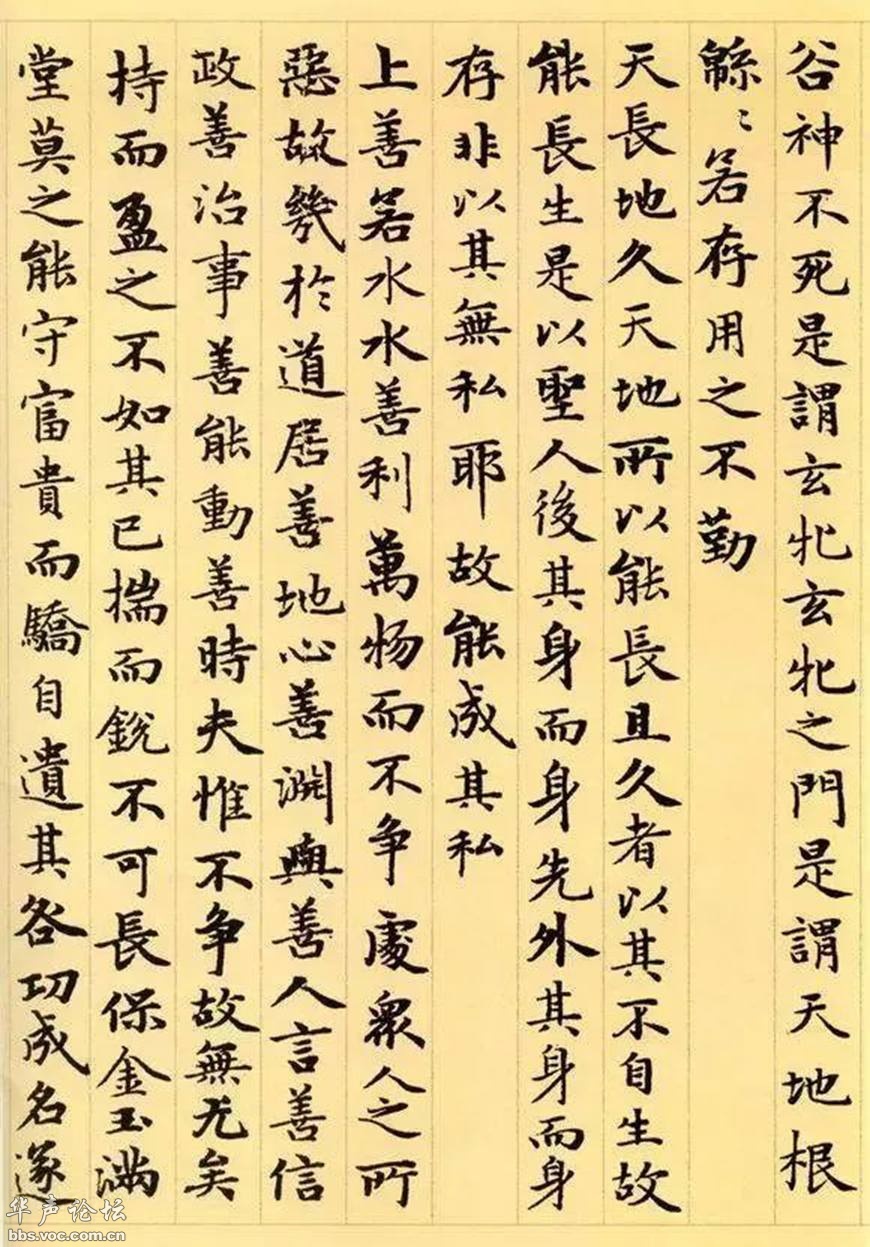 谷神不死是謂玄牝玄牝之門是謂天地根
緜〻若存用之不勤
天長地久天地所以能長且久者以其不自生故
能長生是以聖人後其身而身先外其身而身
存非以其無私耶故能成其私
上善若水水善利萬物而不争處衆人之所
惡故幾於道居善地心善淵與善人言善信
政善治事善能動善時夫惟不争故無尤矣
持而盈之不如其已揣而銳不可長保金玉滿
堂莫之能守富貴而驕自遺其咎功成名遂
华声论坛
bbs.voc.com.cn